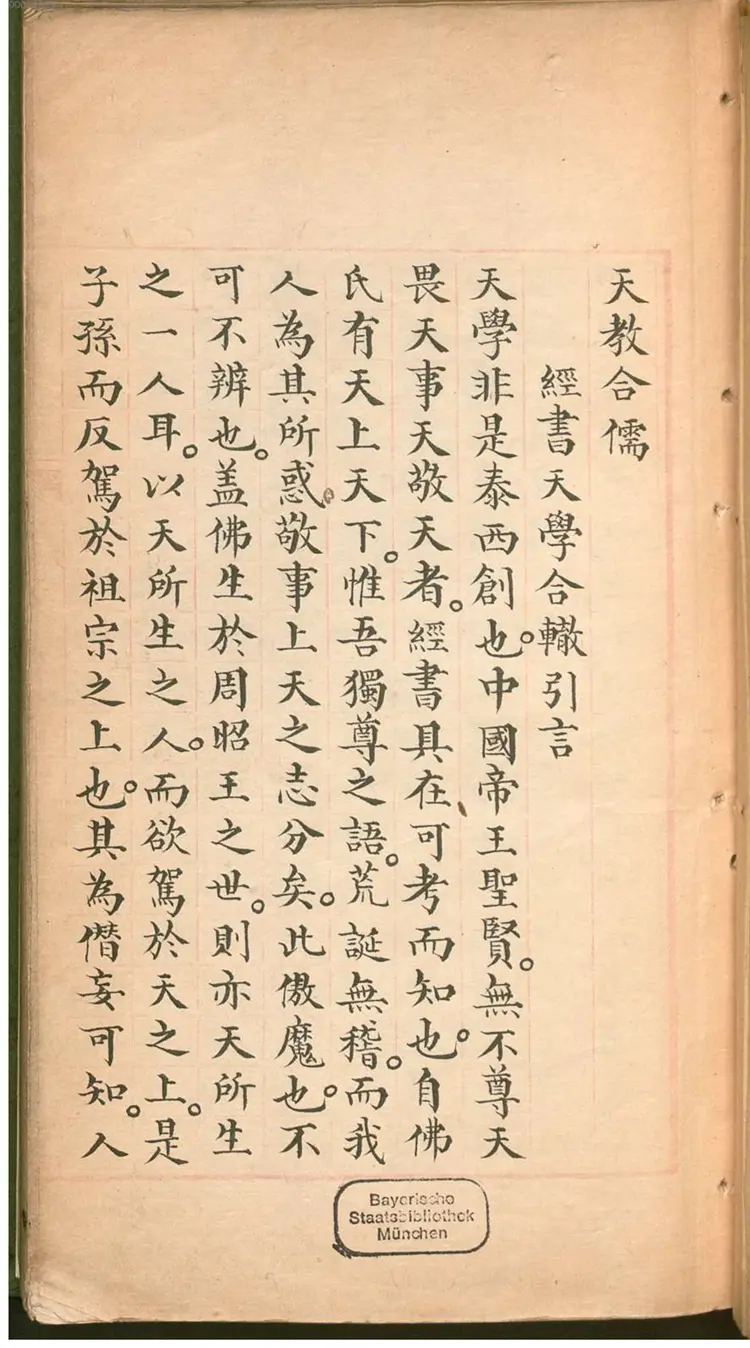 天教合儒
經書天學合轍引言
天學非是泰西創也。中國帝王聖賢。無不尊天
畏天事天敬天者。經書具在可考而知也。自佛
氏有天上天下。惟吾獨尊之語。荒誕無稽。而我
人為其所惑。敬事上天之志分矣。此傲魔也。不
可不辨也。盖佛生於周昭王之世。則亦天所生
之一人耳。以天所生之人。而欲駕於天之上。是
子孫而反駕於祖宗之上也。其為僭妄可知。人
Bayerische
Staatsbibliothek
München